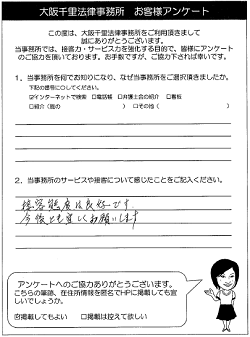 大阪千里法律事務所　お客様アンケート
この度は、大阪千里法律事務所をご利用頂きまして
誠にありがとうございます。
当事務所では、接客力・サービス力を強化する目的で、皆様にアンケート
のご協力を頂いております。お手数ですが、ご協力下されば幸いです。
1．当事務所を何でお知りになり、なぜ当事務所をご選択頂きましたか。
下記の番号に○してください。
☑インターネットで検索　□電話帳　□弁護士会の紹介　□看板
□紹介（親の　　　）□その他（　　　）
2．当事務所のサービスや接客について感じたことをご記入ください。
接客態度は良好です
今後とも宜しくお願いします
アンケートへのご協力ありがとうございます。
こちらの筆跡、在住所情報を匿名でHPに掲載しても宜
しいでしょうか。
☑掲載してもよい　□掲載は控えて欲しい